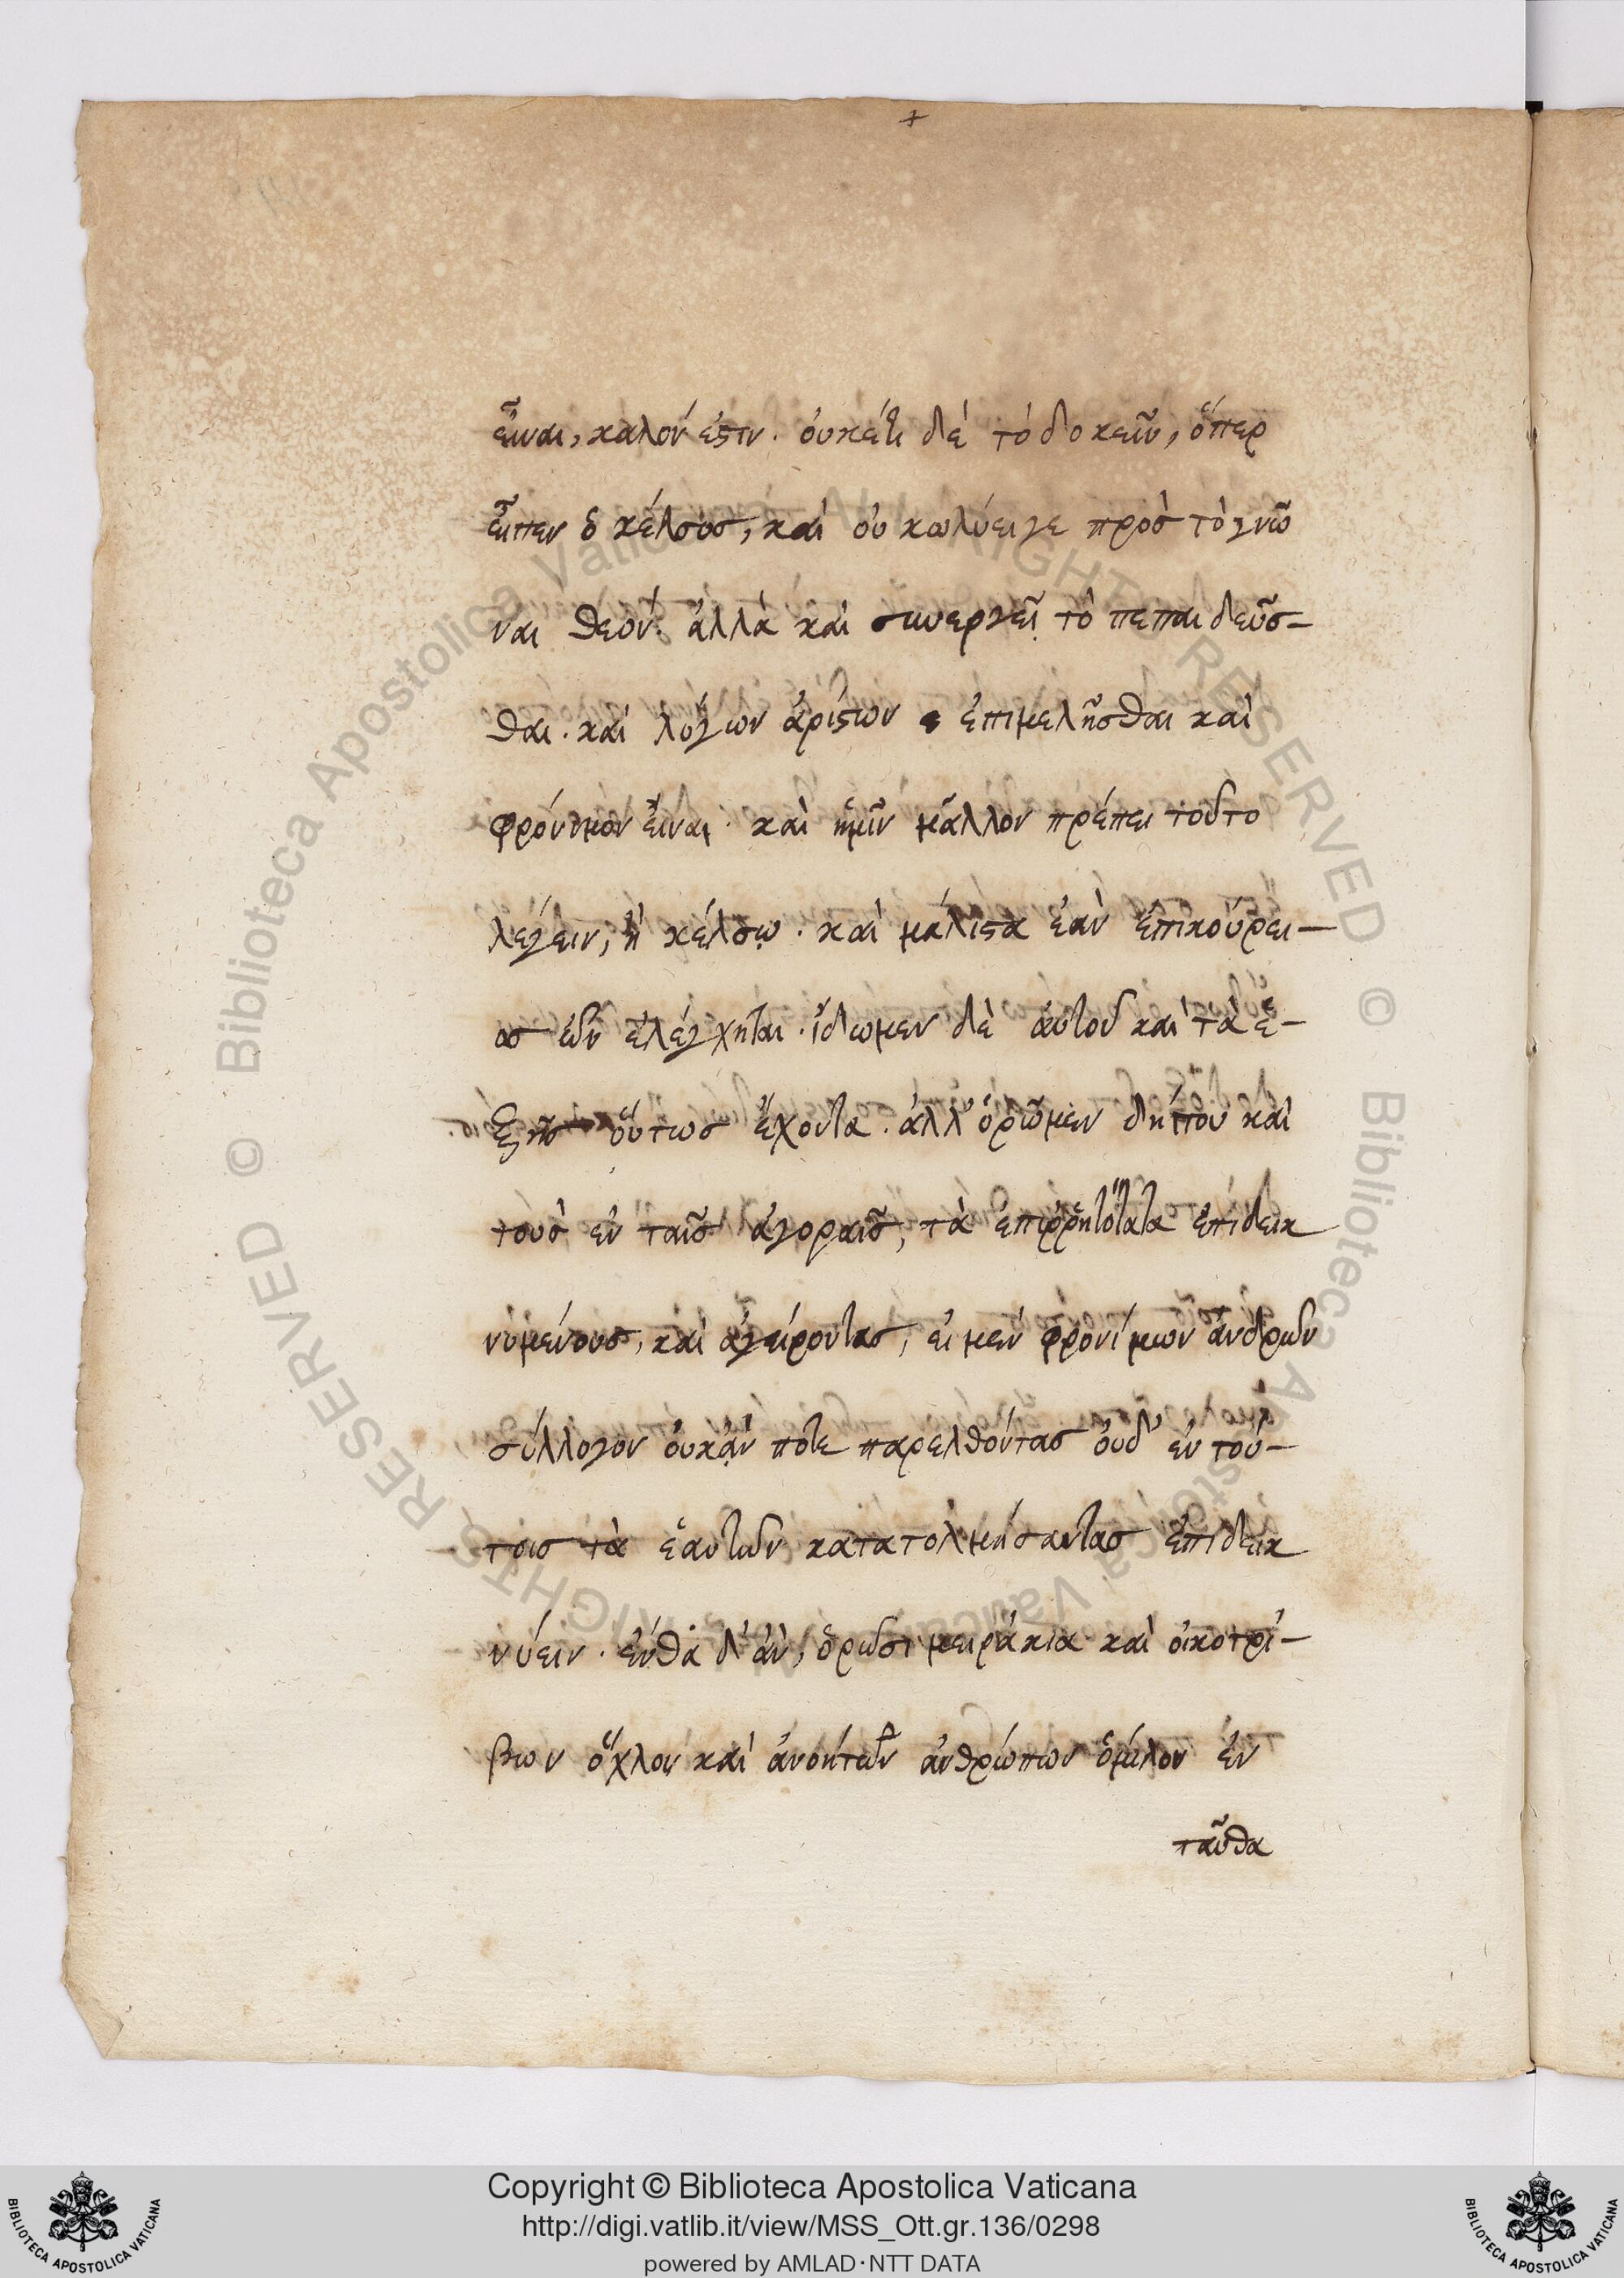 +
εἶναι, καλόν ἐστιν. οὐκέτι δὲ τὸ δοκεῖν, ὅπερ
εἶπεν ὁ κέλσος, καὶ οὐ κωλύει γε πρὸς τὸ γνῶ
ναι θεόν. ἀλλὰ καὶ συνεργεῖ τὸ πεπαιδεῦσ-
θαι. καὶ λόγων ἀρίστων ἐπιμελῆσθαι καὶ
φρόνιμον εἶναι. καὶ ἡμῖν μᾶλλον πρέπει τοῦτο
λέγειν, ἢ κέλσῳ. καὶ μάλιστα ἐὰν ἐπικούρει-
ος ὢν ἐλέγχηται. ἴδωμεν δὲ αὐτοῦ καὶ τὰ ἑ-
ξῆς οὕτως ἔχοντα. ἀλλ' ὁρῶμεν δήπου καὶ
τοὺς ἐν ταῖς ἀγοραῖς, τὰ ἐπιρρητότατα ἐπιδεικ
νυμένους, καὶ ἀγείροντας, εἰ μὲν φρονίμων ἀνδρῶν
σύλλογον οὐκ ἄν ποτε παρελθόντας οὐδ' ἐν τού-
τοις τὰ ἑαυτῶν κατατολμήσαντας ἐπιδεικ
νύειν. ἔνθα δ' ἂν, ὁρῶσι μειράκια καὶ οἰκοτρί-
βων ὄχλον καὶ ἀνοήτων ἀνθρώπων ὅμιλον ἐν
ταῦθα
© Biblioteca Apostolica Vaticana ALL RIGHTS RESERVED © Biblioteca Apostolica Vaticana ALL RIGHTS RESERVED
Copyright © Biblioteca Apostolica Vaticana
http://digi.vatlib.it/view/MSS_Ott.gr.136/0298
powered by AMLAD·NTT DATA
BIBLIOTECA APOSTOLICA VATICANA
BIBLIOTECA APOSTOLICA VATICANA